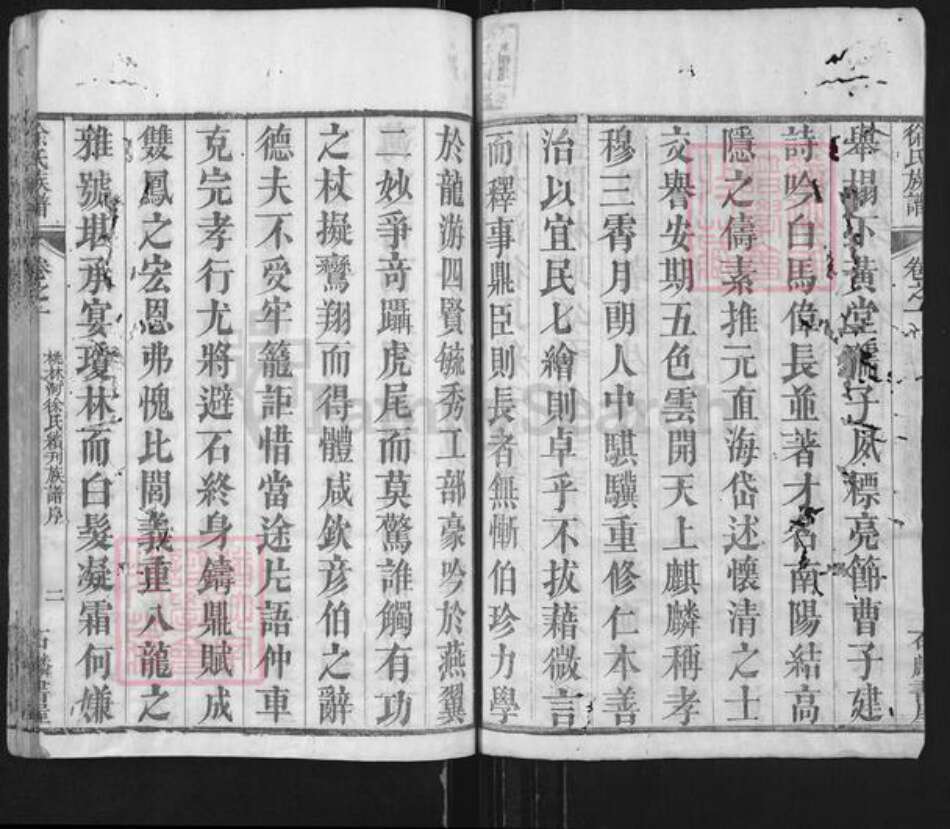 徐氏族譜
卷之一
石麟書屋
舉榻下黃堂孺子夙標亮節曹子建
詩吟白馬偉長並著才名南陽結高
隱之儔素推元直海岱述懷清之士
交譽安期五色雲開天上麒麟稱孝
穆三霄月朗人中騏驥重修仁本善
治以宜民七繪則卓乎不拔藉微言
而釋事鼎臣則長者無慚伯珍力學
於龍游四賢毓秀工部豪吟於燕翼
二妙爭奇躡虎尾而莫驚誰觸有功
之杖擬鸞翔而得體咸欽彥伯之辭
德夫不受牢籠詎惜當途片語仲車
克完孝行尤將避石終身鑄鼎賦成
雙鳳之宏恩弗愧比閭義重八龍之
雅號堪承宴瓊林而白髮凝霜何嫌
徐氏族譜
卷之一
桃林河徐氏續刊族譜序
二
石麟書屋